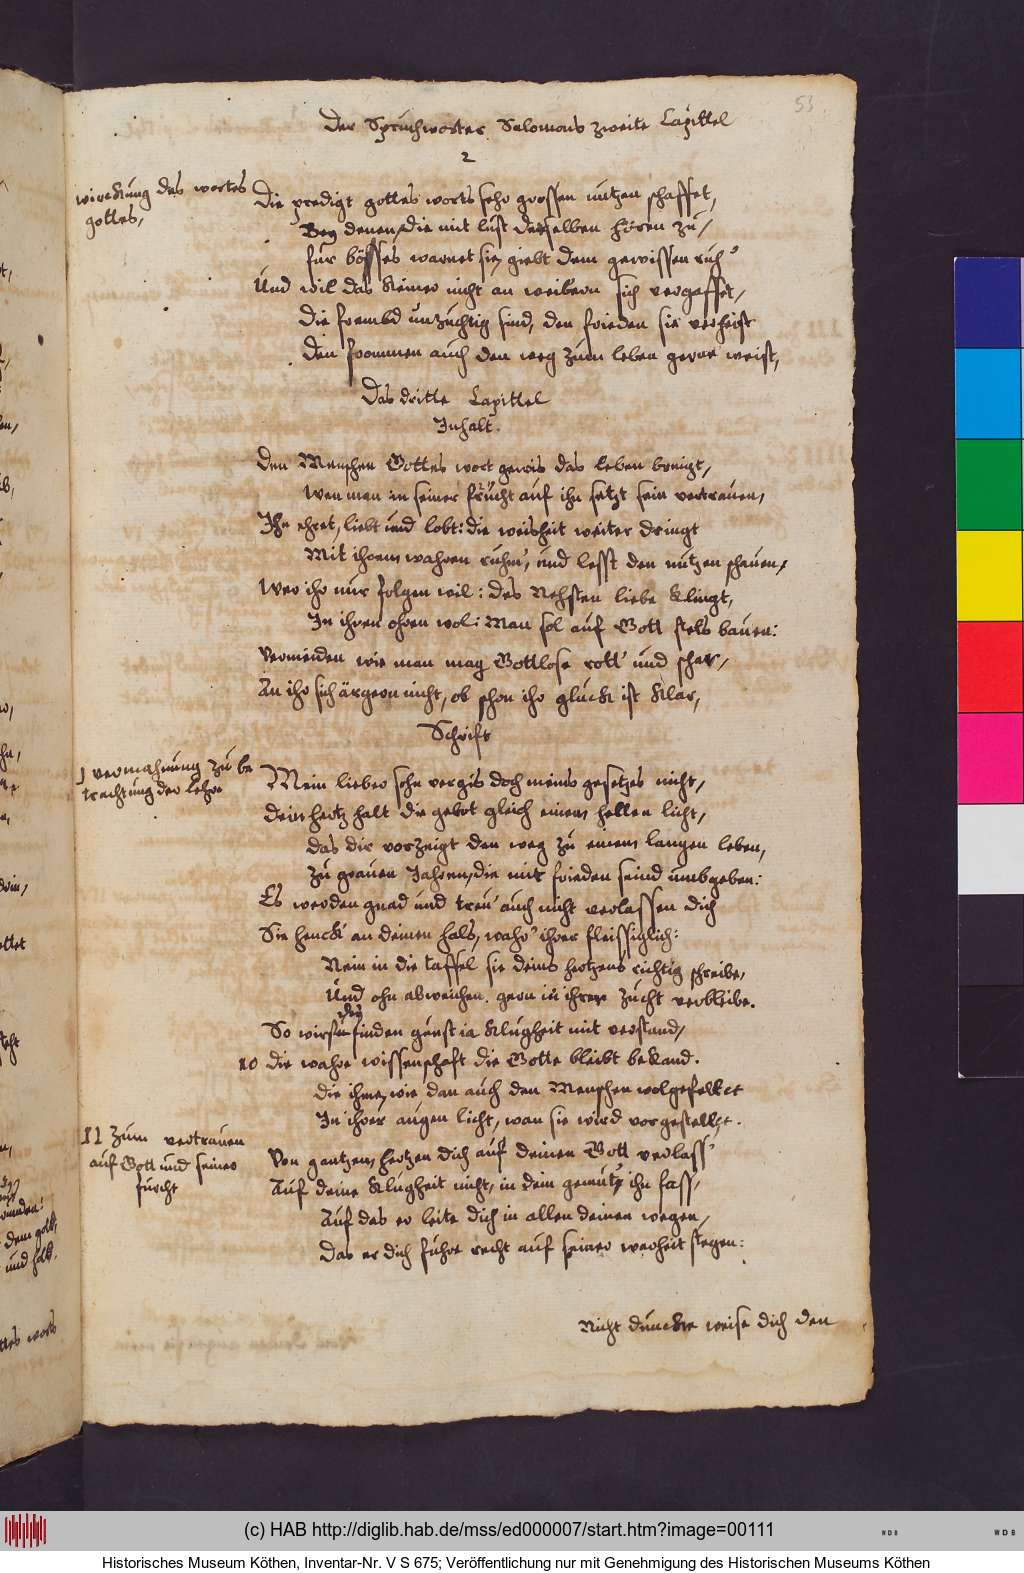 53
Der Spruchworter Salomons zweite Capittel
2
wirckung des wortes
gottes,
Die predigt gottes worts sehr grossen nutzen schaffet,
Bey denen, die mit lust desselben hören zu,
für bösses warnet sie, giebt dem gewissen ruh'
Und wil das keiner nicht an weibern sich vergaffet,
Die frembd unzüchtig sind, den frieden sie verheist
Den frommen auch den weg zum leben gerne weist,
Das dritte Capittel
Inhalt.
Den Menschen Gottes wort gewis das leben bringt,
Wen man in seiner frücht auf ihn setzt sein vertrauen,
Ihn ehret, liebt und lobt: die weisheit weiter dringt
Mit ihrem wahren ruhm', und lesst den nutzen schauen,
Wer ihr nur folgen wil: des Nehsten liebe klingt,
In ihren ohren wol: Man sol auf Gott stets bauen:
Vermeiden wie man mag Gottlose rott' und schar,
An ihr sich ärgern nicht, ob schon ihr glück ist klar,
Schrift
I vermahnung zu be
trachtung der lehre
Mein lieber sohn vergis doch meins gesetzes nicht,
Dein hertz halt die gebot gleich einem hellen licht,
das dir vorzeigt den weg zu einem langen leben,
zu grauen Jahren, die mit frieden seind umbgeben:
Es werden gnad und treu' auch nicht verlassen dich
Sie henck' an deinen hals, wahr' ihrer fleissiglich:
Nein in die taffel sie deins hertzens richtig schreibe,
Und ohn abweichen gern in ihrer zucht verbleibe.
So wirstu finden gunst ia klugheit mit verstand,
10 die wahre wissenschaft die Gotte bleibt bekand.
die ihme, wie dan auch den Menschen wolgefellet
In ihrer augen licht, wan sie wird vorgestellet.
II Zum vertrauen
auf Gott und seiner
furcht
Von gantzem hertzen dich auf deinen Gott verlass'
Auf deine klugheit nicht, in dein gemüt' ihn fass',
Auf das er leite dich in allen deinen wegen,
Das er dich führe recht auf seiner warheit stegen:
Nicht duncke weise dich den
(c) HAB http://diglib.hab.de/mss/ed000007/start.htm?image=00111
WDB
WDB
Historisches Museum Köthen, Inventar-Nr. V S 675; Veröffentlichung nur mit Genehmigung des Historischen Museums Köthen